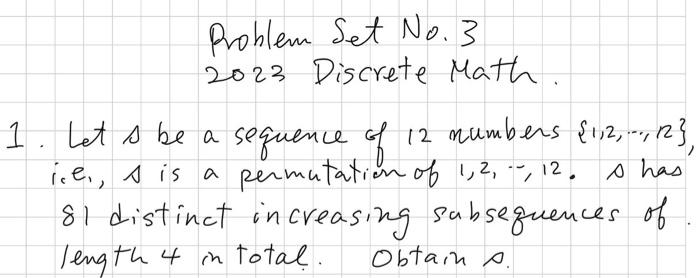 Problem Set No. 3
2023 Discrete Math.
1. Let s be a sequence of 12 numbers {1,2,..., 12},
i.e., s is a permutation of 1,2, ..., 12. s has
81 distinct increasing subsequences of
length 4 in total. Obtain s.